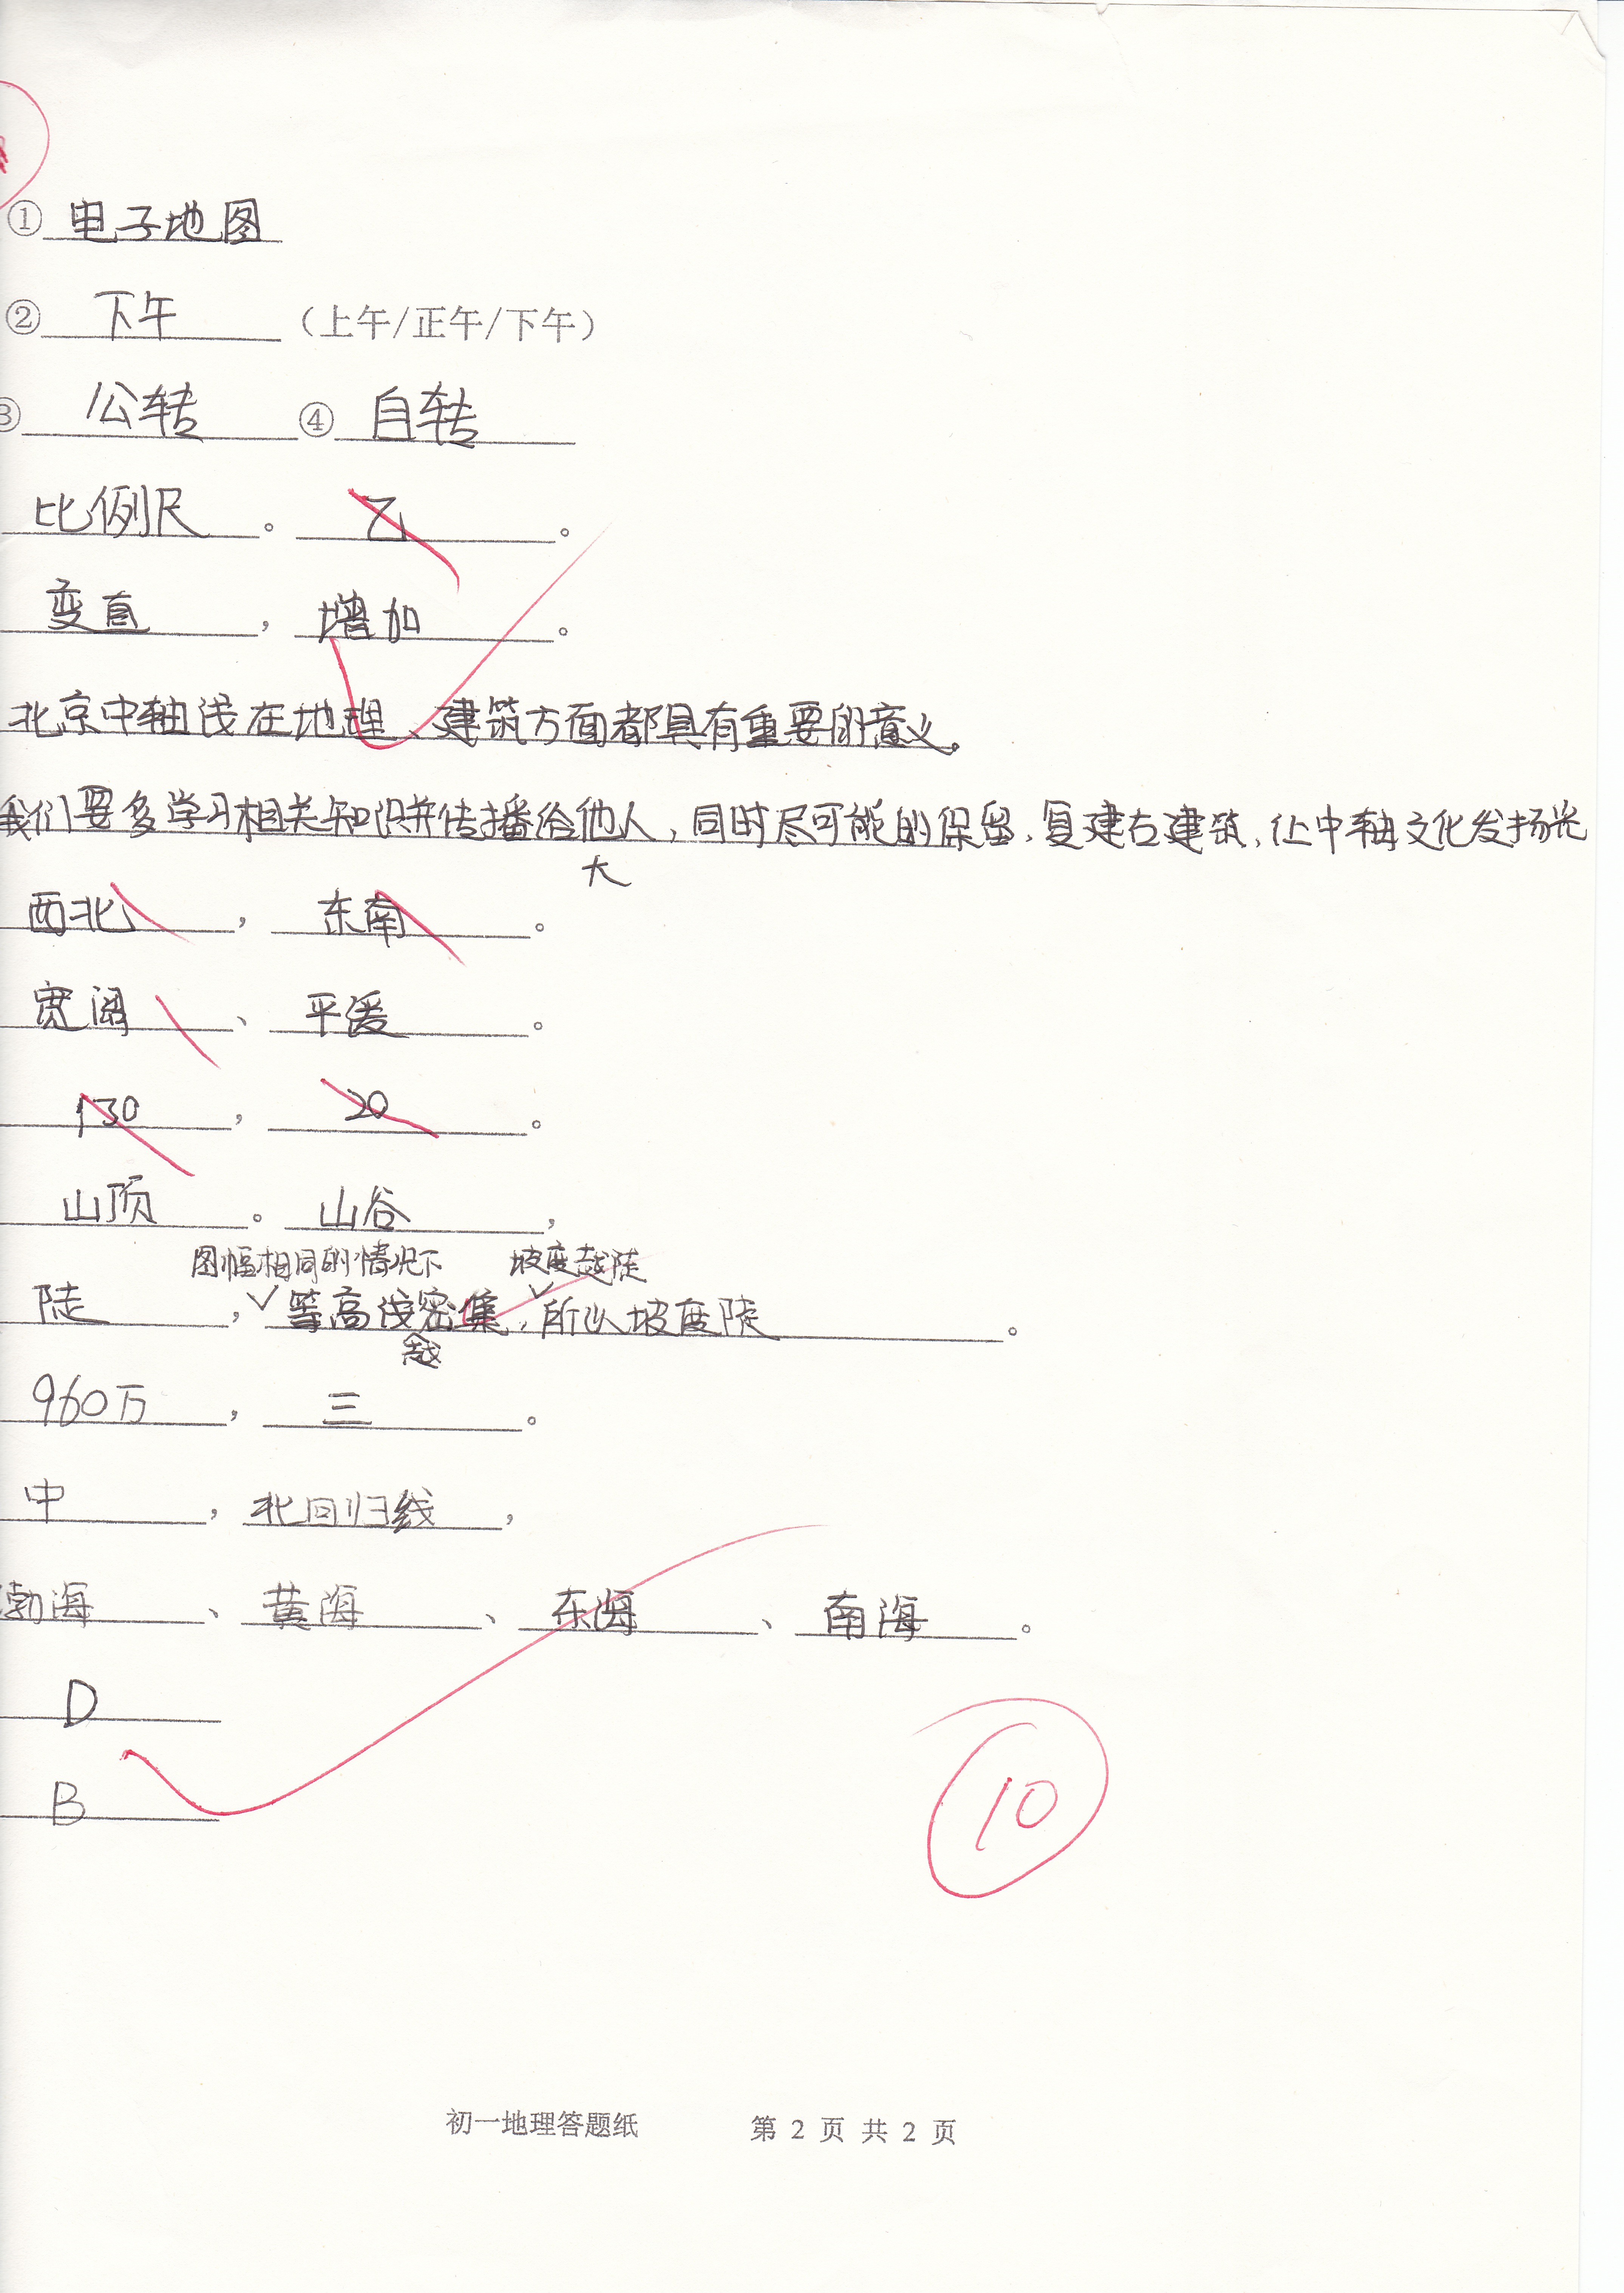 ① 电子地图
② 下午 （上午/正午/下午）
③ 公转 ④ 自转
比例尺 。 乙 。
变直 ， 增加 。
北京中轴线在地理、建筑方面都具有重要的意义。
我们要多学习相关知识并传播给他人，同时尽可能的保留、复建古建筑，让中轴文化发扬光
大
西北 ， 东南 。
宽阔 、 平缓 。
130 ， 20 。
山顶 。 山谷 ，
图幅相同的情况下 坡度越陡
陡 ， 等高线密集，所以坡度陡 。
越
960万 ， 三 。
中 ， 北回归线 ，
渤海 、 黄海 、 东海 、 南海 。
D
B
10
初一地理答题纸 第 2 页 共 2 页